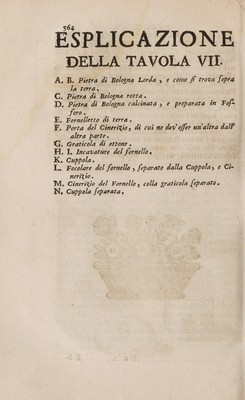 364
ESPLICAZIONE
DELLA TAVOLA VII.
A. B. Pietra di Bologna Lorda, e come si trova sopra
la terra.
C. Pietra di Bologna rotta.
D. Pietra di Bologna calcinata, e preparata in Fos-
foro.
E. Fornelletto di terra.
F. Porta del Cinerizio, di cui ne dev'esser un'altra dall'
altra parte.
G. Graticola di ottone.
H. I. Incavature del fornello.
K. Cuppola.
L. Focolare del fornello, separato dalla Cuppola, e Ci-
nerizio.
M. Cinerizio del Fornello, colla graticola separato.
N. Cuppola separata.